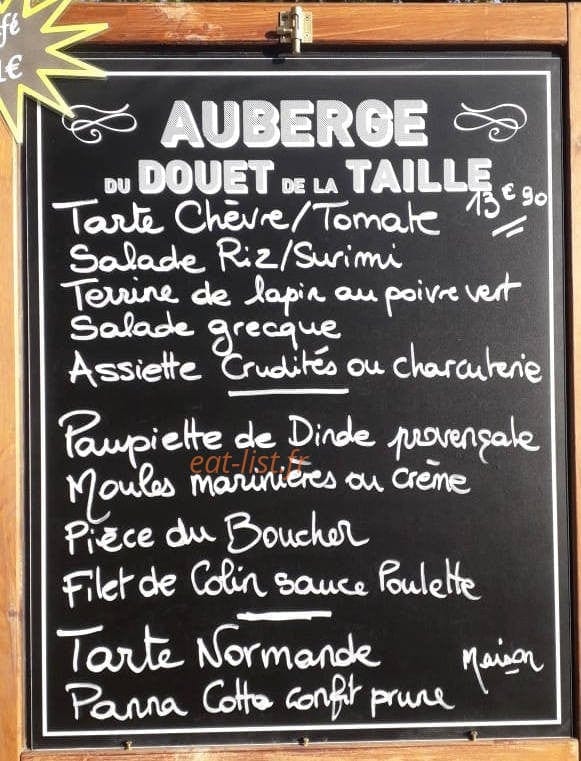 fé
1€
AUBERGE
DU DOUET DE LA TAILLE
13€90
Tarte Chèvre/Tomate
Salade Riz/Surimi
Terrine de lapin au poivre vert
Salade grecque
Assiette Crudités ou charcuterie
Paupiette de Dinde provençale
eat-list.fr
Moules marinières ou crème
Pièce du Boucher
Filet de Colin sauce Poulette
Tarte Normande Maison
Panna Cotta confit prune